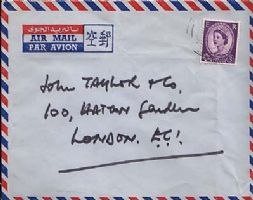 بالبريد الجوى
AIR MAIL
PAR AVION
空郵
John TAYLOR & Co,
100, HATTON Garden
LONDON. EC1